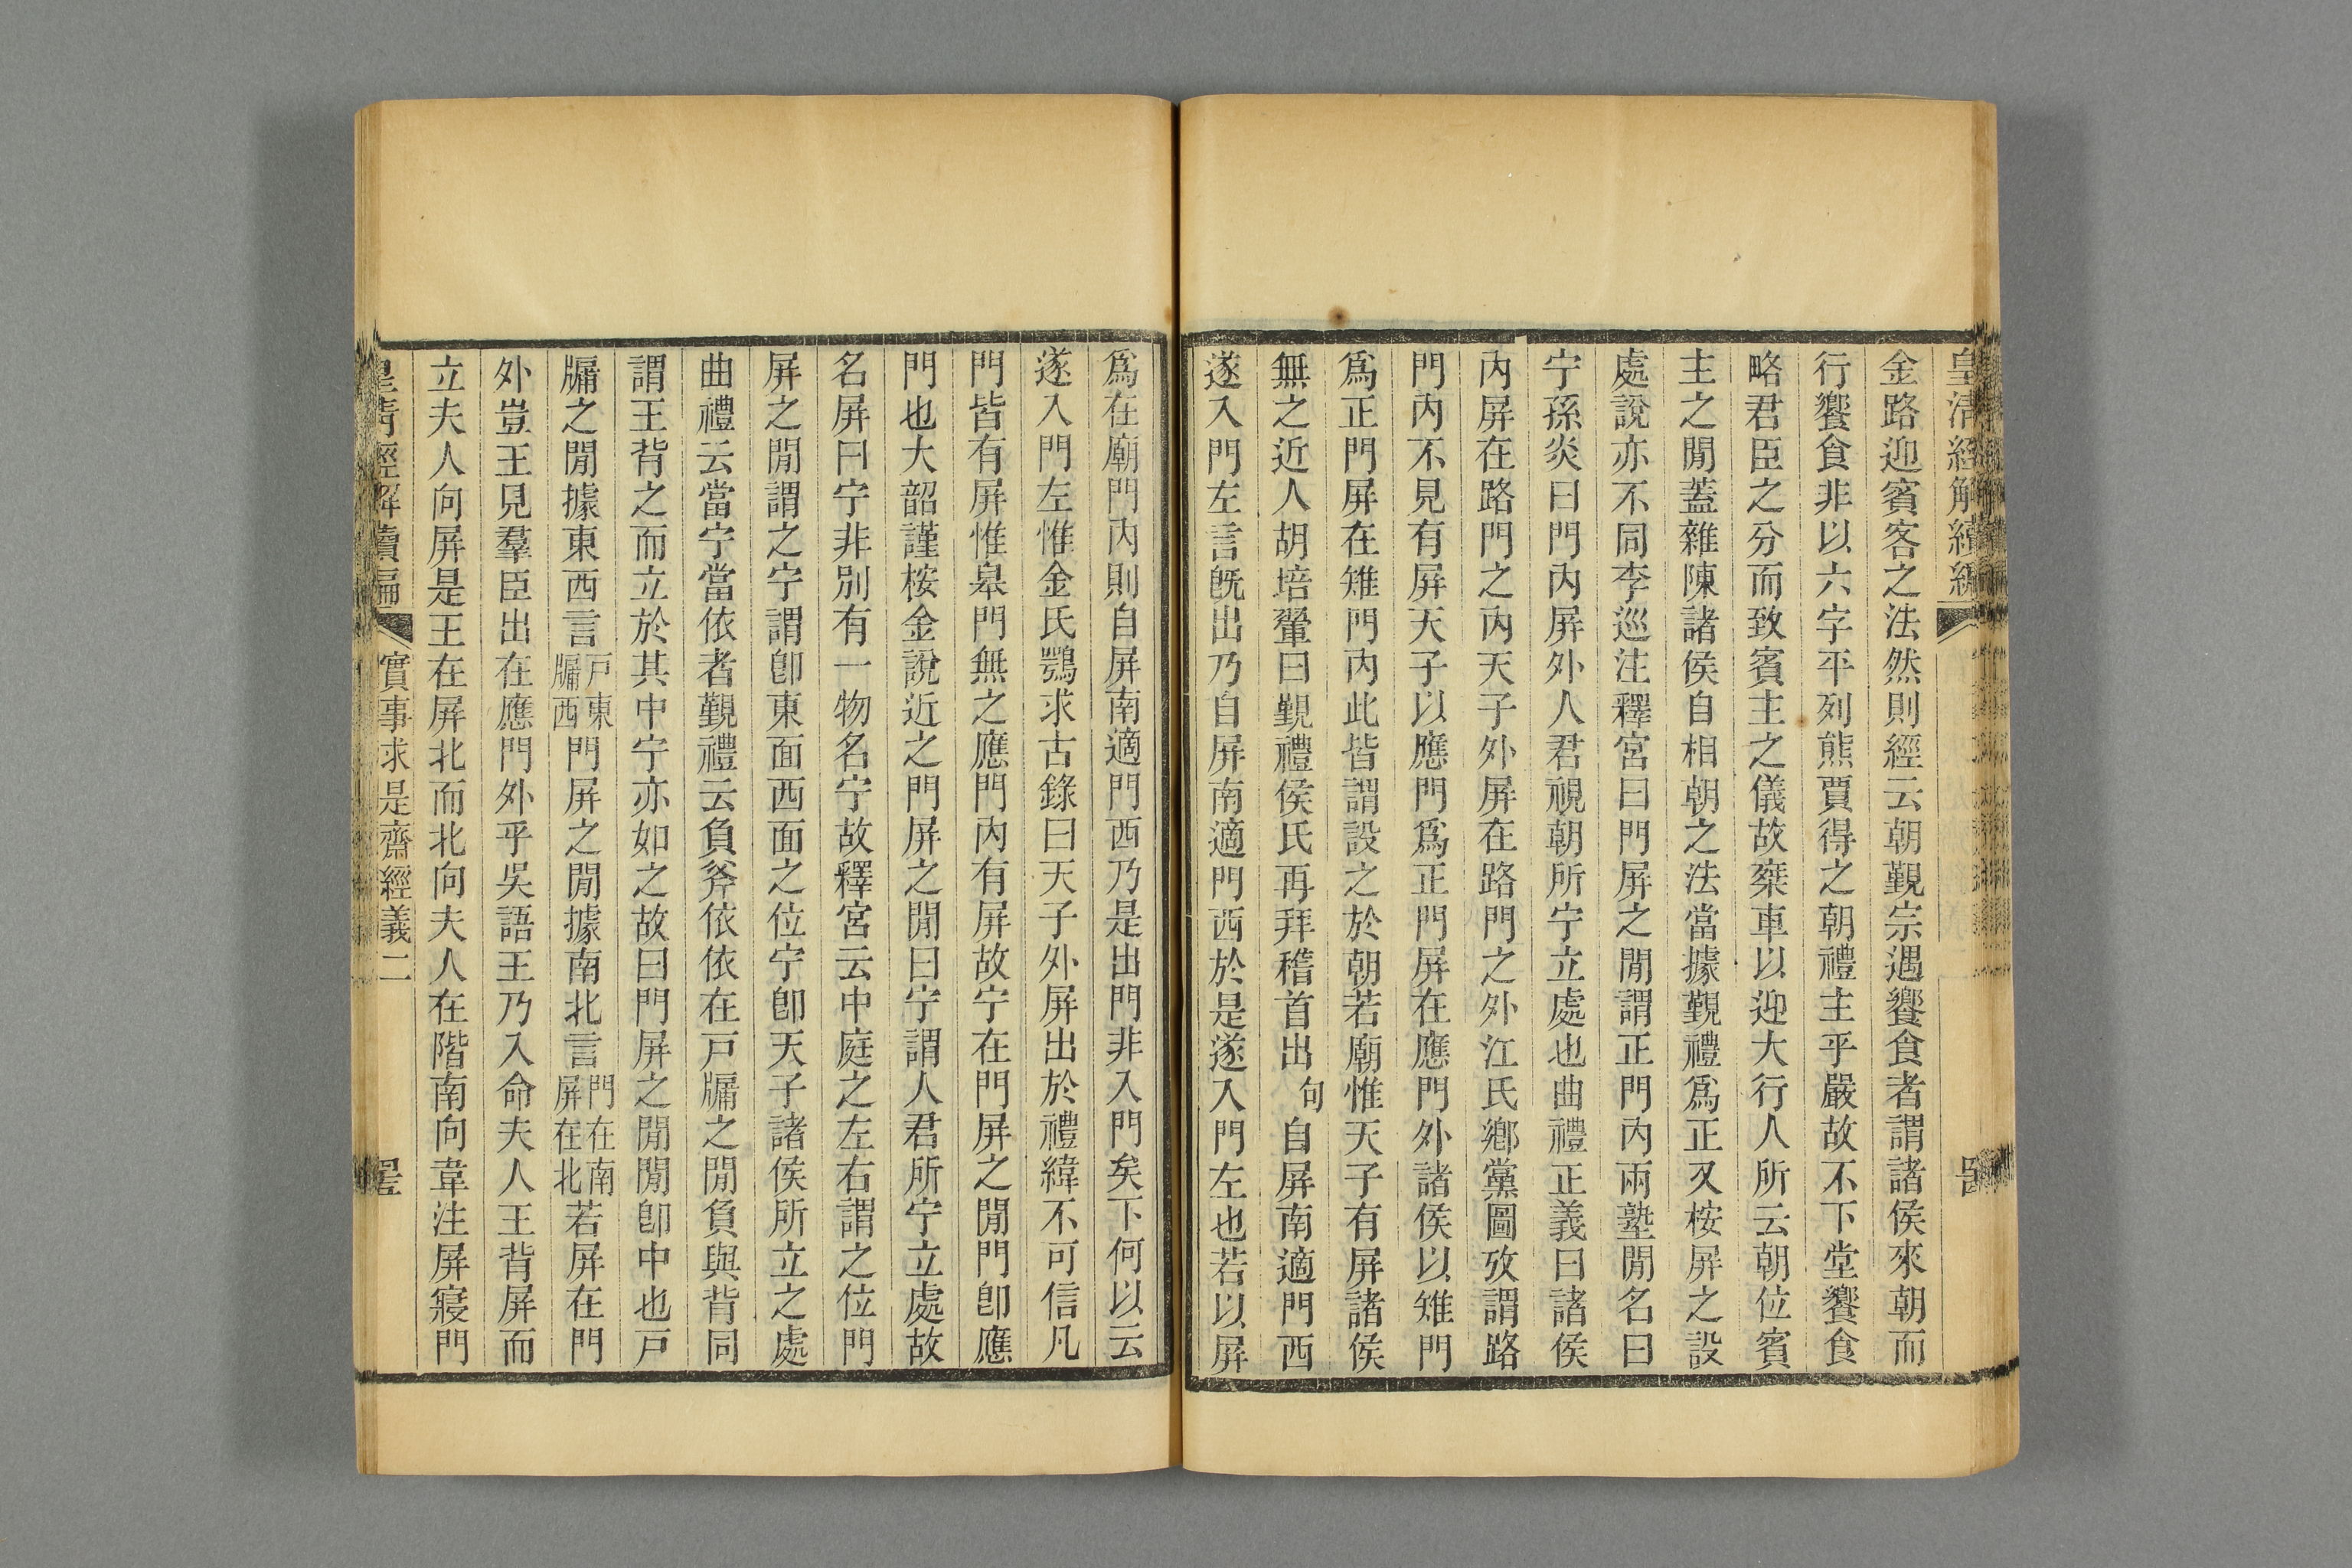 皇清經解續編
金路迎賓客之法然則經云朝覲宗遇饗食者謂諸侯來朝而
行饗食非以六字平列熊賈得之朝禮主乎嚴故不下堂饗食
略君臣之分而致賓主之儀故椉車以迎大行人所云朝位賓
主之閒蓋雜陳諸侯自相朝之法當據覲禮爲正又桉屏之設
處說亦不同李巡注釋宮曰門屏之閒謂正門內兩塾閒名曰
宁孫炎曰門內屏外人君視朝所宁立處也曲禮正義曰諸侯
內屏在路門之內天子外屏在路門之外江氏鄉黨圖攷謂路
門內不見有屏天子以應門爲正門屏在應門外諸侯以雉門
爲正門屏在雉門內此皆謂設之於朝若廟惟天子有屏諸侯
無之近人胡培翬曰覲禮侯氏再拜稽首出句自屏南適門西
遂入門左言旣出乃自屏南適門西於是遂入門左也若以屏
爲在廟門內則自屏南適門西乃是出門非入門矣下何以云
遂入門左惟金氏鶚求古錄曰天子外屏出於禮緯不可信凡
門皆有屏惟皋門無之應門內有屏故宁在門屏之閒門卽應
門也大韶謹桉金說近之門屏之閒曰宁謂人君所宁立處故
名屏曰宁非別有一物名宁故釋宮云中庭之左右謂之位門
屏之閒謂之宁謂卽東面西面之位宁卽天子諸侯所立之處
曲禮云當宁當依者覲禮云負斧依依在戸牖之閒負與背同
謂王背之而立於其中宁亦如之故曰門屏之閒閒卽中也戸
牖之閒據東西言戸東牖西門屏之閒據南北言門在南屏在北若屏在門
外豈王見羣臣出在應門外乎吳語王乃入命夫人王背屏而
立夫人向屏是王在屏北而北向夫人在階南向韋注屏寢門
皇淸經解續編
實事求是齋經義二